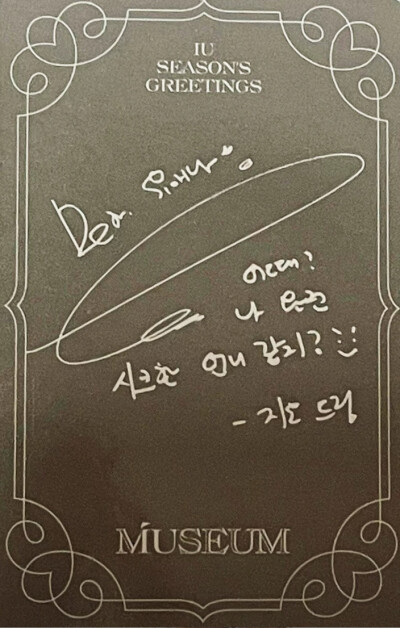 IU
SEASON'S
GREETINGS
Dear. 유애나♥.
어때?
나 완전
시크한 언니 같지? :)
- 지은 드림
MUSEUM